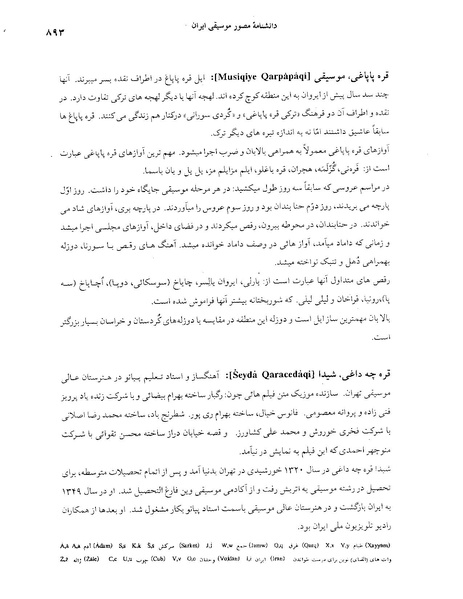 دانشنامهٔ مصور موسیقی ایران
۸۹۳
قره پاپاغی، موسیقی [Musiqiye Qarpâpâqi]: ایل قره پاپاغ در اطراف نقده بسر میبرند. آنها
چند صد سال پیش از ایروان به این منطقه کوچ کرده اند. لهجه آنها با دیگر لهجه های ترکی تفاوت دارد. در
نقده و اطراف آن دو فرهنگ «ترکی قره پاپاغی» و «کُردی سورانی» درکنار هم زندگی می‌کنند. قره پاپاغ ها
سابقاً عاشیق داشتند امّا نه به اندازه تیره های دیگر ترک.
آوازهای قره پاپاغی معمولاً به همراهی بالابان و ضرب اجرا میشود. مهم ترین آوازهای قره پاپاغی عبارت
است از: قره‌نی، گُزلَمَه، هجران، قره باغلو، ایلم مزایلم مز، یل یل و بان باسما.
در مراسم عروسی که سابقاً سه روز طول میکشید: در هر مرحله موسیقی جایگاه خود را داشت. روز اوّل
پارچه می بریدند، روز دوّم حنا بندان بود و روز سوم عروس را میآوردند. در پارچه بری، آوازهای شاد می
خواندند. در حنابندان، در محوطه بیرون، رقص میکردند و در فضای داخل، آوازهای مجلسی اجرا میشد
و زمانی که داماد میآمد، آواز هائی در وصف داماد خوانده میشد. آهنگ های رقص با سورنا، دوزله
بهمراهی دُهل و تنبک نواخته میشد.
رقص های متداول آنها عبارت است از: یارلی، ایروان یالسر، چاپاخ (سوسکائی، دوپا)، اُچاپاخ (سه
پا)، رونیا، قواخان و لیلی لیلی. که شوربختانه بیشتر آنها فراموش شده است.
بالابان مهمترین ساز ایل است و دوزله این منطقه در مقایسه با دوزله‌های کُردستان و خراسان بسیار بزرگتر
است.
قره چه داغی، شیدا [Šeydâ Qaracedâqi]: آهنگساز و استاد تعلیم پیانو در هنرستان عالی
موسیقی تهران. سازنده موزیک متن فیلم هائی چون: رگبار ساخته بهرام بیضائی و با شرکت زنده یاد پرویز
فنی زاده و پروانه معصومی. فانوس خیال، ساخته بهرام ری پور. شطرنج باد، ساخته محمد رضا اصلانی
با شرکت فخری خوروش و محمد علی کشاورز. و قصه خیابان دراز ساخته محسن تقوائی با شرکت
منوچهر احمدی که این فیلم به نمایش در نیامد.
شیدا قره چه داغی در سال ۱۳۲۰ خورشیدی در تهران بدنیا آمد و پس از اتمام تحصیلات متوسطه، برای
تحصیل در رشته موسیقی به اتریش رفت و از آکادمی موسیقی وین فارغ التحصیل شد. او در سال ۱۳۴۹
به ایران بازگشت و در هنرستان عالی موسیقی باسمت استاد پیانو بکار مشغول شد. او بعدها از همکاران
رادیو تلویزیون ملی ایران بود.